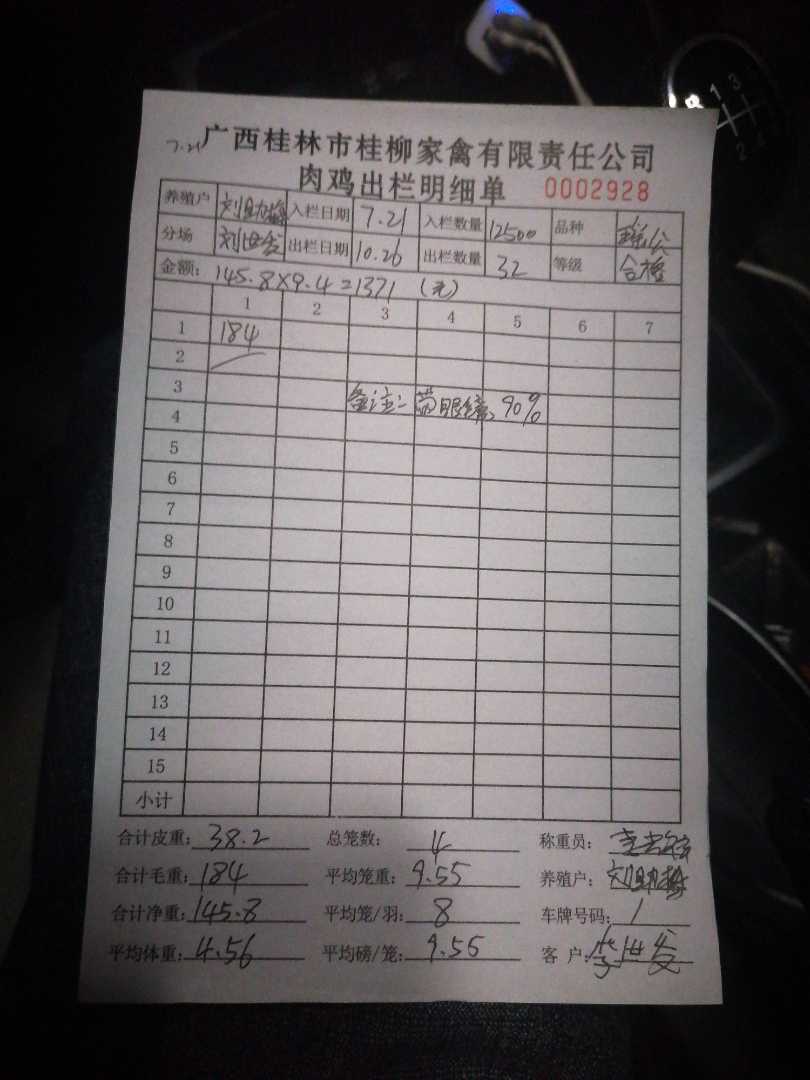 7.21
广西桂林市桂柳家禽有限责任公司
肉鸡出栏明细单 0002928
养殖户 刘助 入栏日期 7.21 入栏数量 12500 品种 公
分场 刘世发 出栏日期 10.26 出栏数量 32 等级 合格
金额: 145.8×9.4=1371 (元)
1 2 3 4 5 6 7
1 184
2
3 备注: 眼 90%
4
5
6
7
8
9
10
11
12
13
14
15
小计
合计皮重: 38.2 总笼数: 4 称重员:
合计毛重: 184 平均笼重: 9.55 养殖户: 刘助
合计净重: 145.8 平均笼/羽: 8 车牌号码: 1
平均体重: 4.56 平均磅/笼: 9.55 客 户: 世发
1 3
2